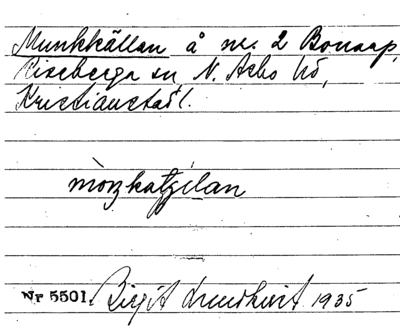 Munkkällan å nr. 2 Bonarp,
Riseberga sn N. Åsbo hd,
Kristianstads l.
Nr 5501. Birgit Lundkvist 1935